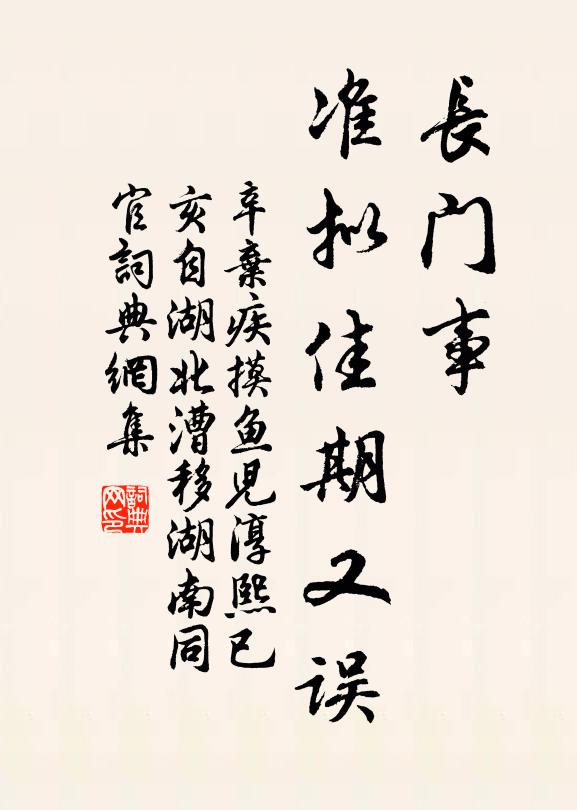 長門事
准拟佳期又误
辛棄疾摸鱼児淳熙已
亥自湖北漕移湖南同
官詞典網集
詞典
网印